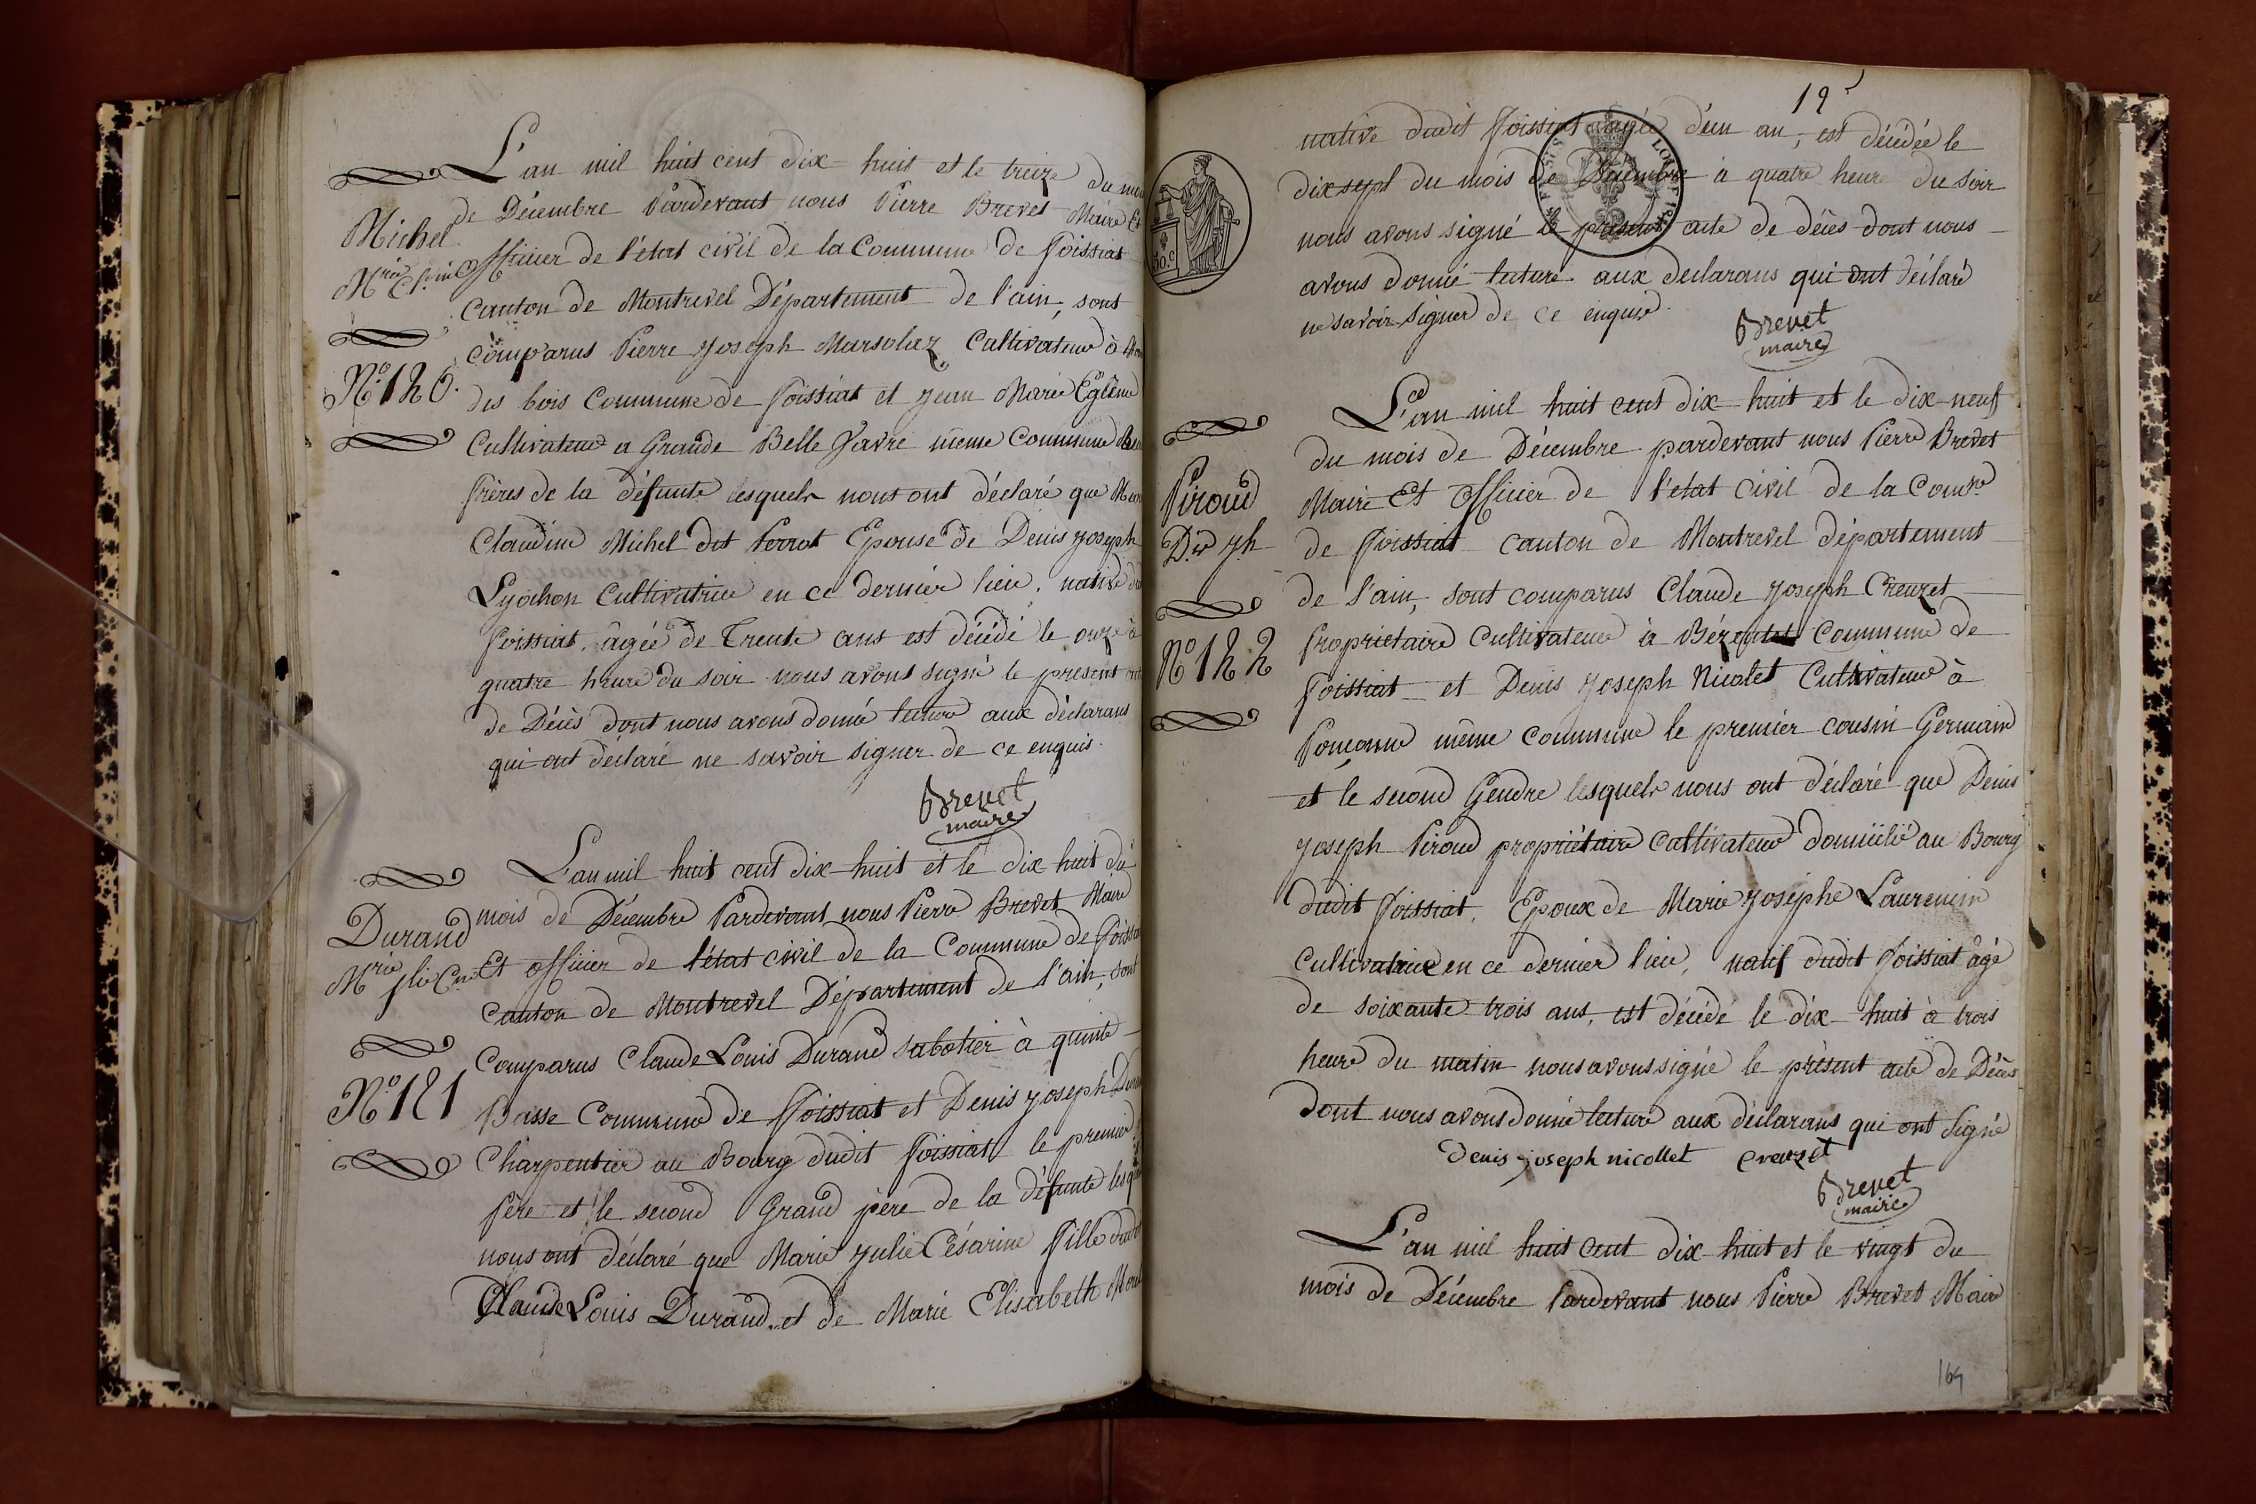 L'an mil huit cent dix-huit et le treize du
de Décembre Pardevant nous Pierre Brevet Maire Et
Officier de l'état civil de la Commune de Foissiat
Canton de Montrevel Département de l'ain, sont
comparus Pierre Joseph Marsolaz Cultivateur à
des bois Commune de Foissiat et Jean Marie Eglème
Cultivateur a Grande Belle Favre même Commune
frères de la défunte lesquels nous ont déclaré que
Claudine Michel dit Perrot Epouse de Denis Joseph
Lyochon Cultivatrice en ce dernier lieu, native
Foissiat, âgée de Trente ans est décédé le onze à
quatre heure du soir nous avons signé le present
de Décès dont nous avons donné lecture aux déclarans
qui ont déclaré ne savoir signer de ce enquis.
Brevet
maire
Michel
N° 120.
L'an mil huit cent dix-huit et le dix huit du
mois de Décembre Pardevant nous Pierre Brevet Maire
Et officier de l'état civil de la Commune de
canton de Montrevel Département de l'ain, sont
Comparus Claude Louis Durand sabotier à quinte
Basse Commune de Foissiat et Denis Joseph
Charpentier au Bourg dudit Foissiat le premier
Père et le second Grand père de la défunte
nous ont déclaré que Marie Julie Césarine Fille
Claude Louis Durand, et de Marie Elisabeth
Durand
N° 121
19
native dudit Foissiat agée d'un an, est décédée le
dix sept du mois de Décembre à quatre heure du soir
nous avons signé le présent acte de décès dont nous
avons donné lecture aux declarans qui ont déclaré
ne savoir signer de ce enquis.
Brevet
maire
L'an mil huit cent dix-huit et le dix-neuf
du mois de Décembre pardevant nous Pierre Brevet
Maire Et Officier de l'état civil de la Comne
de Foissiat canton de Montrevel département
de l'ain, sont comparus Claude Joseph Creuzet
Propriétaire Cultivateur à Commune de
Foissiat et Denis Joseph Nicolet Cultivateur à
même commune le premier cousin Germain
et le second Gendre lesquels nous ont déclaré que Denis
Joseph Piroud propriétaire Cultivateur domicilié au Bourg
dudit Foissiat, Epoux de Marie Josephe Laurencin
Cultivatrice en ce dernier lieu, natif dudit Foissiat âgé
de soixante trois ans, est décédé le dix-huit à trois
heure du matin nous avons signé le présent acte de Décès
dont nous avons donné lecture aux déclarans qui ont signé
Denis joseph nicollet creuzet
Brevet
maire
Piroud
Dis Jh
N° 122
L'an mil huit cent dix-huit et le vingt du
mois de Décembre Pardevant nous Pierre Brevet Maire
169